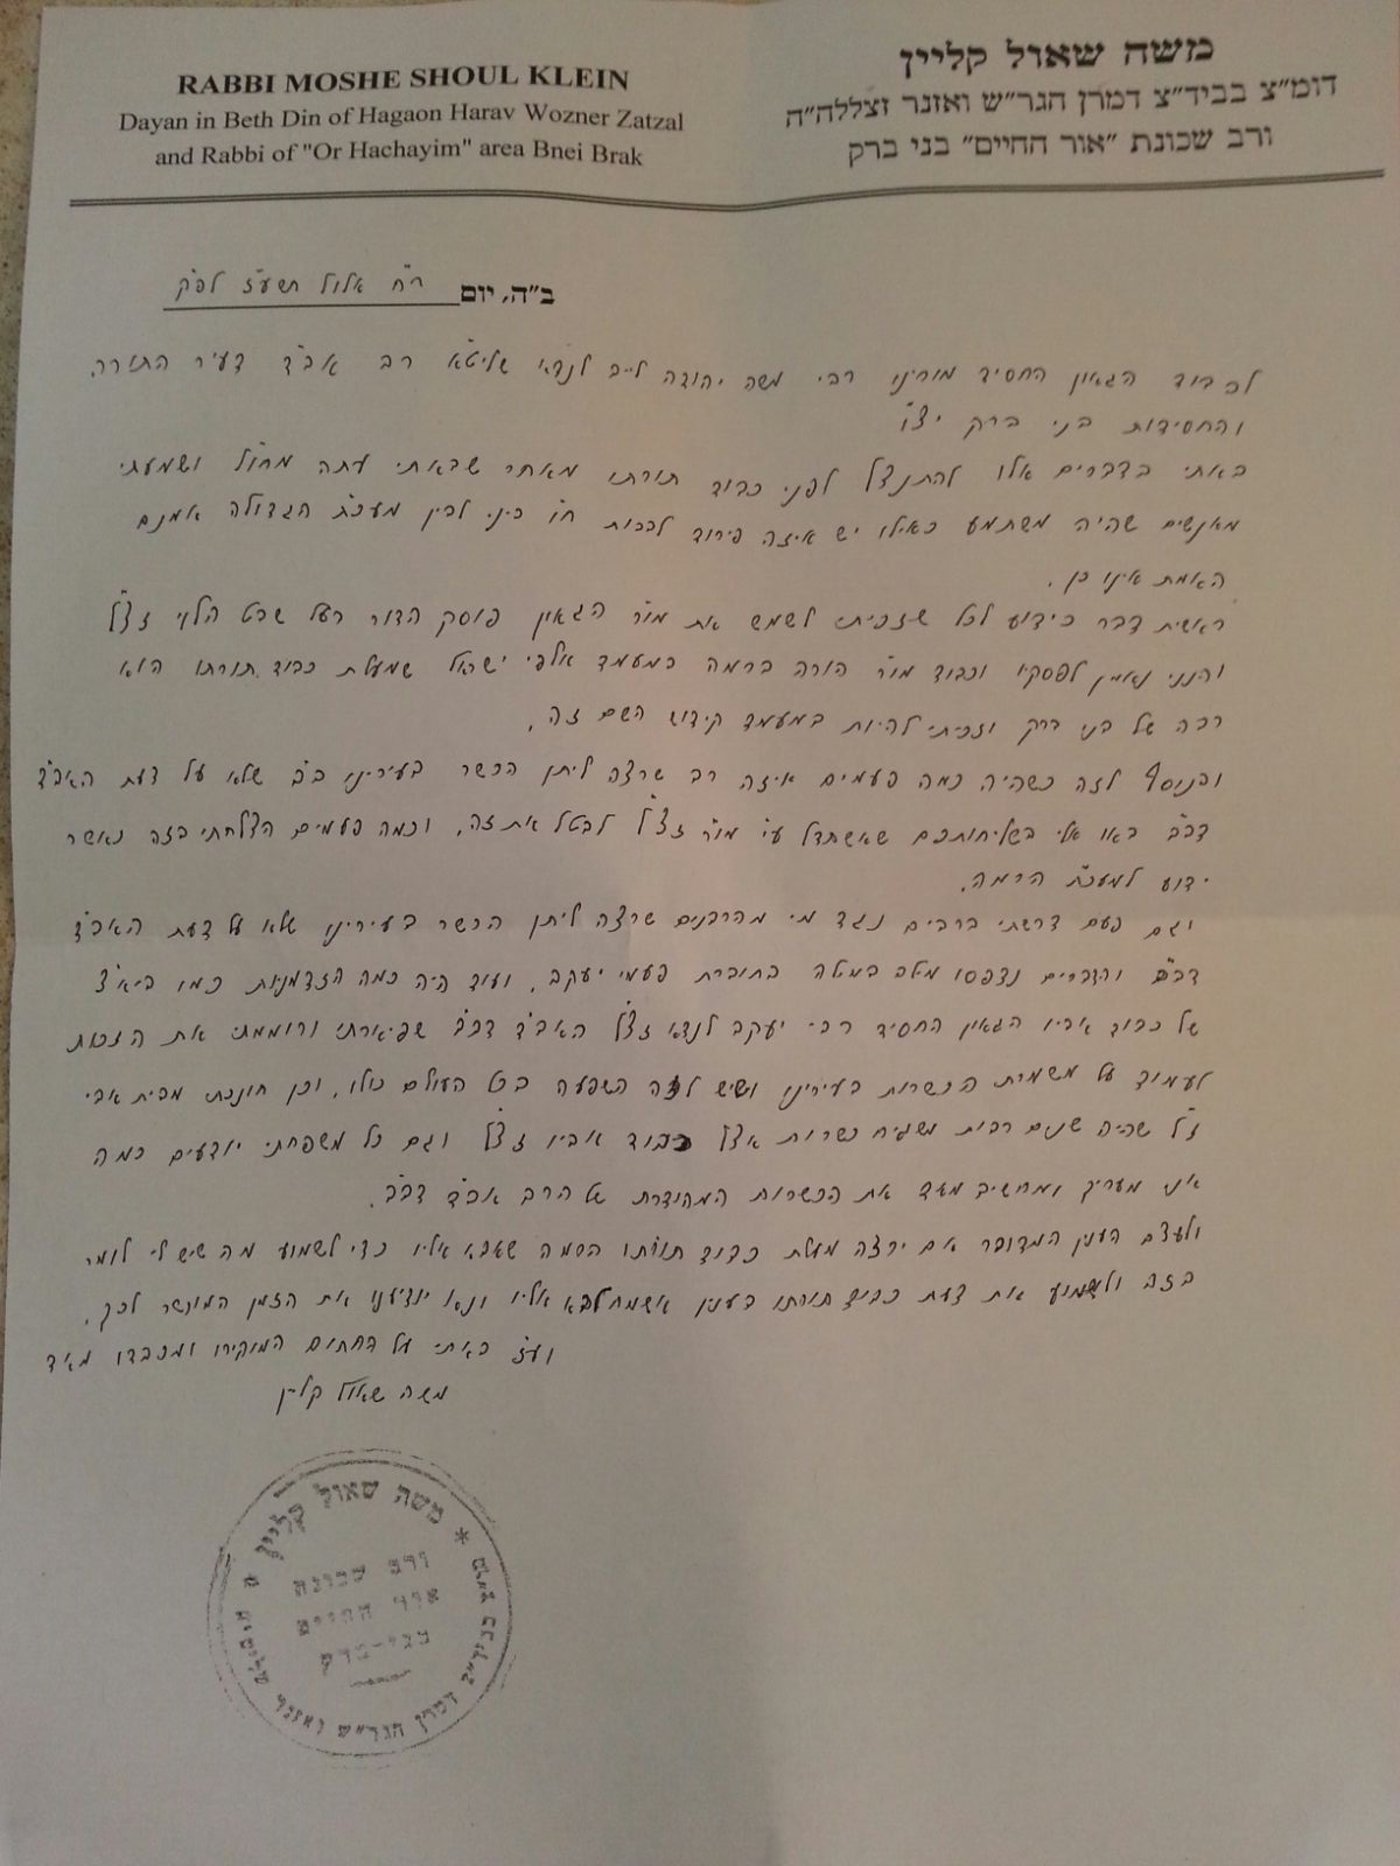 RABBI MOSHE SHOUL KLEIN
Dayan in Beth Din of Hagaon Harav Wozner Zatzal
and Rabbi of "Or Hachayim" area Bnei Brak
משה שאול קליין
דומ״צ בביד״צ דמרן הגר״ש ואזנר זצללה״ה
ורב שכונת ״אור החיים״ בני ברק
ב״ה, יום ר״ח אלול תשע״ז לפ״ק
לכבוד הגאון החסיד מורינו רבי משה יהודה לייב לנדאי שליט״א רב אב״ד דעיר התורה
והחסידות בני ברק יצ״ו
באתי בדברים אלו להתנצל לפני כבוד תורתו מאחר שבאתי עתה מחו״ל ושמעתי
מאנשים שהיה משתמע כאילו יש איזה פירוד לבבות ח״ו ביני לבין מעכ״ת הגדולה אמנם
האמת אינו כן.
ראשית דבר כידוע לכל שזכיתי לשמש את מו״ר הגאון פוסק הדור בעל שבט הלוי זצ״ל
והנני נאמן לפסקיו וכבוד מו״ר הורה ברמה במעמד אלפי ישראל שמעלת כבוד תורתו הוא
רבה של בני ברק וזכיתי להיות במעמד קידוש השם זה.
ובנוסף לזה כשהיה כמה פעמים איזה רב שרצה ליתן הכשר בעירינו ב״ב שלא על דעת האב״ד
דב״ב באו אלי בשליחותכם שאשתדל ע״י מו״ר זצ״ל לבטל את זה, וכמה פעמים הצלחתי בזה כאשר
ידוע למעכ״ת הרמה.
וגם פעם דרשתי ברבים נגד מי מהרבנים שרצה ליתן הכשר בעירינו שלא על דעת האב״ד
דב״ב והדברים נדפסו מלה במלה בחוברת פעמי יעקב, ועוד היה כמה הזדמנויות כמו ביא״צ
של כבוד אביו הגאון החסיד רבי יעקב לנדא זצ״ל האב״ד דב״ב שפיארתי ורוממתי את הזכות
לעמוד על משמרת הכשרות בעירינו ושיש לזה השפעה בכל העולם כולו, וכן חונכתי מבית אבי
ז״ל שהיה שנים רבות משגיח כשרות אצל כבוד אביו זצ״ל וגם כל משפחתי יודעים כמה
אני מעריך ומחשיב מאד את הכשרות המהודרת של הרב אב״ד דב״ב.
ולעצם הענין המדובר אם ירצה מעלת כבוד תורתו הרמה שאבא אליו כדי לשמוע מה שיש לי לומר
בזה ולשמוע את דעת כבוד תורתו בענין אשמח לבא אליו ונא יודיענו את הזמן המוכשר לכך.
ועז״ באתי על החתום המוקירו ומכבדו מאד
משה שאול קליין
משה שאול קליין *
ורב שכונת
אור החיים
בני-ברק
דמרן הגר״ש ואזנר שליט״א